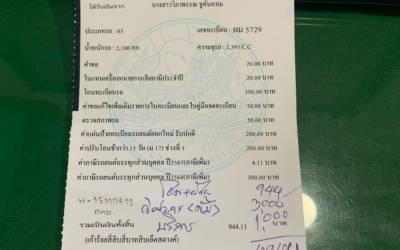 ได้รับเงินจาก นางสาววิภาพรรณ ชูคันหอม
ประเภทรถ : 03 เลขทะเบียน : ผม 5729
น้ำหนักรถ : 2,100 กก. ความจุรถ : 2,393 C.C
ค่าขอ 20.00 บาท
ใบแทนเครื่องหมายการเสียภาษีประจำปี 20.00 บาท
โอนทะเบียนรถ 100.00 บาท
ค่าขอแก้ไขเพิ่มเติมรายการในทะเบียนและใบคู่มือจดทะเบียน 50.00 บาท
ตรวจสภาพรถ 50.00 บาท
ค่าแผ่นป้ายทะเบียนรถยนต์ออกใหม่ รับปกติ 200.00 บาท
ค่าปรับโอนช้ากว่า 15 วัน (ม.17) ช่วงที่ 1 200.00 บาท
ค่าภาษีรถยนต์บรรทุกส่วนบุคคล ปี2567(ภาษีเพิ่ม) 4.11 บาท
ค่าภาษีรถยนต์บรรทุกส่วนบุคคล ปี2568(ภาษีเพิ่ม) 300.00 บาท
944
3000
บริการ 1,000
รวมเป็นเงินทั้งสิ้น 944.11 บาท
(เก้าร้อยสี่สิบสี่บาทสิบเอ็ดสตางค์)